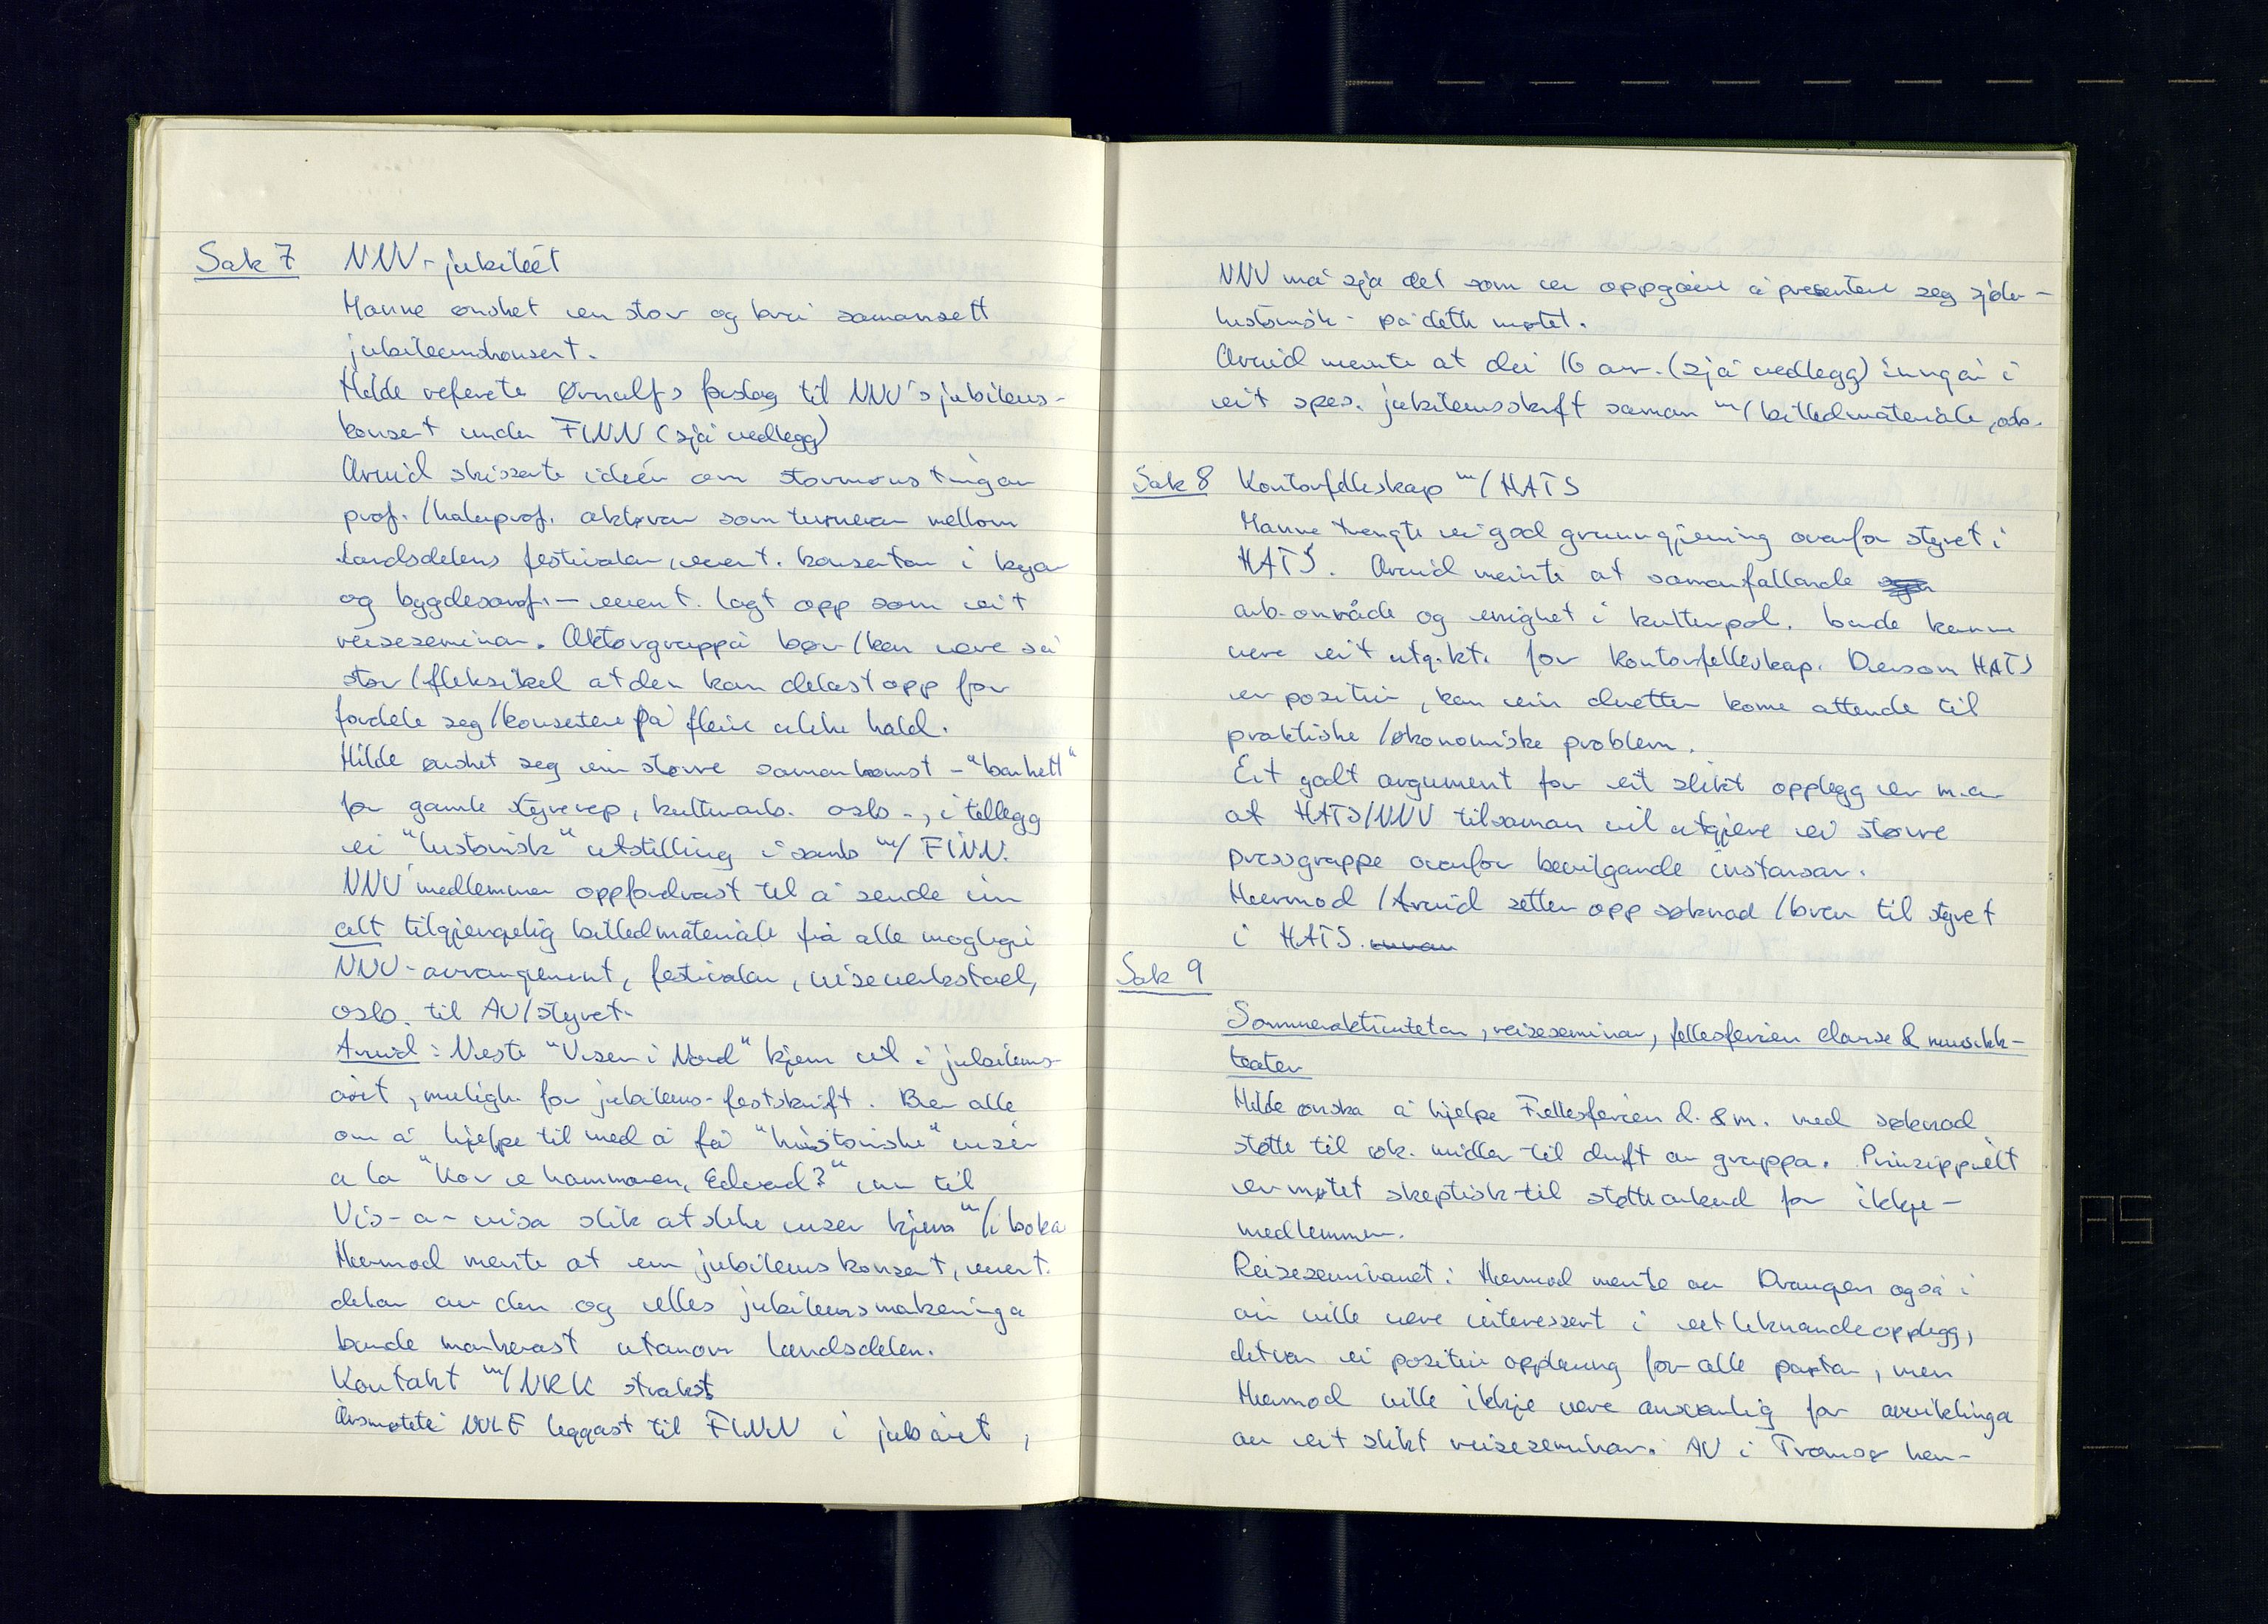 Sak 7 NNV-jubileet
Hanne ønsket en stor og bra samansett
jubileumskonsert.
Hilde referete Ørnulfs forslag til NNV's jubileums-
konsert under FINN (sjå vedlegg)
Arvid skisserte idéen om stormønstringar
prof./halvprof. aktørar som turnerar mellom
landsdelens festivalar, event. konsertar i byar
og bygdesamf. – event. lagt opp som eit
reiseseminar. Aktørgruppa bør/kan vere så
stor/fleksibel at den kan delast opp for
fordele seg/konsertene på fleire ulike hald.
Hilde ønsket seg ein større samankomst - "bankett"
for gamle styrerep, kulturarb. osb -, i tillegg
ei "historisk" utstilling i samb m/ FINN.
NNV medlemmer oppfordrast til å sende inn
alt tilgjengelig billedmateriale frå alle moglege
NNV-arrangement, festivalar, viseverkstad,
osb. til AU/styret.
Arvid: Neste "Viser i Nord" kjem ut i jubileums-
året, muligh. for jubileums-festskrift. Ber alle
om å hjelpe til med å få "historiske" viser
a la "Kor e hammaren, Edvard?" inn til
Vis-a-visa slik at slike viser kjem m/i boka
Hermod mente at ein jubileumskonsert, event.
delar av den og elles jubileumsmarkeringa
burde markerast utanom landsdelen.
Kontakt m/NRK strakst
Årsmøtet i NVF leggast til FINN i jubåret,
NNV må sjå det som ei oppgåve å presentere seg sjølv -
historisk - på dette møtet.
Arvid mente at dei 16 arr. (sjå vedlegg) inngår i
eit spes. jubileumsskrift saman m/billedmateriale, osb.
Sak 8 Kontorfelleskap m/HATS
Hanne trengte ei god grunngjeving ovanfor styret i
HATS. Arvid meinte at samanfallande
arb.område og enighet i kulturpol. burde kunne
vere eit utg.kt. for kontorfelleskap. Dersom HATS
er positiv, kan ein deretter kome attende til
praktiske/økonomiske problem.
Eit godt argument for eit slikt opplegg er m.a
at HATS/NNV tilsaman vil utgjere ei større
pressgruppe ovanfor bevilgande instansar.
Hermod/Arvid setter opp søknad/brev til styret
i HATS.
Sak 9
Sommeraktiviteter, reiseseminar, fellesferien danse & musikk-
teater
Hilde ønska å hjelpe Fellesferien d. & m. med søknad
støtte til øk. midler til drift av gruppa. Prinsippielt
er møtet skeptisk til støttearbeid for ikkje-
medlemmer.
Reiseseminaret: Hermod mente at Draugen også i
år ville vere interessert i eit liknande opplegg,
det var ei positiv oppleving for alle partar, men
Hermod ville ikkje vere ansvarlig for avviklinga
av eit slikt reiseseminar. AU i Tromsø hen-